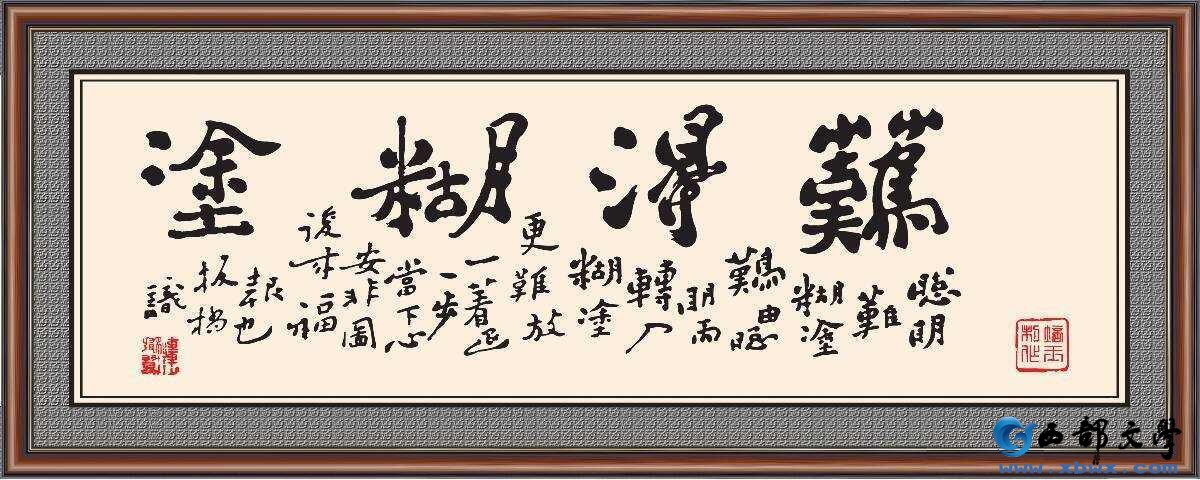 難得糊塗
聰明
難
糊塗
難由聰
明而
轉入
糊塗
更難放
一著退
一步
當下心
安非圖
後來福
報也
板橋
識
西部文學
www.xbwx.com